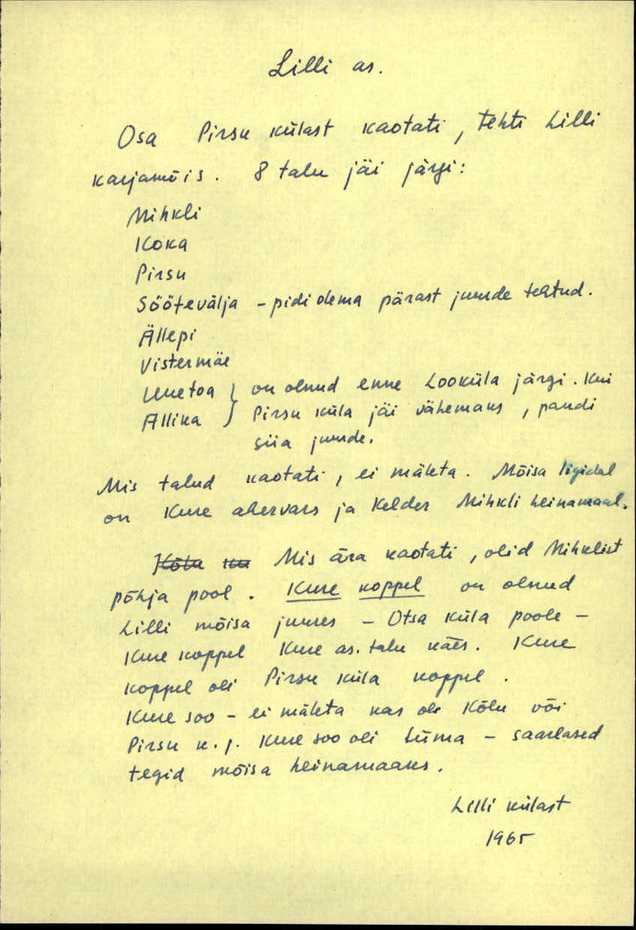 Lilli as.
Osa Pirsu külast kaotati, tehti Lilli
karjamõis. 8 talu jäi järgi:
Mihkli
Koka
Pirsu
Söötevälja – pidi olema pärast juurde tehtud.
Ällepi
Vistermäe
Uuetoa } on olnud enne Looküla järgi. Kui
Allika } Pirsu küla jäi vähemaks, pandi
siia juurde.
Mis talud kaotati, ei mäleta. Mõisa ligidal
on Kure ahervars ja Kelder Mihkli heinamaal.
Kõlu ku Mis ära kaotati, olid Mihklist
põhja pool. Kure koppel on olnud
Lilli mõisa juures – Otsa küla poole –
Kure koppel Kure as. talu käes. Kure
koppel oli Pirsu küla koppel.
Kure soo – ei mäleta kas oli Kõlu või
Pirsu k. j. Kure soo oli – saarlased
tegid mõisa heinamaaks.
Lilli külast
1965